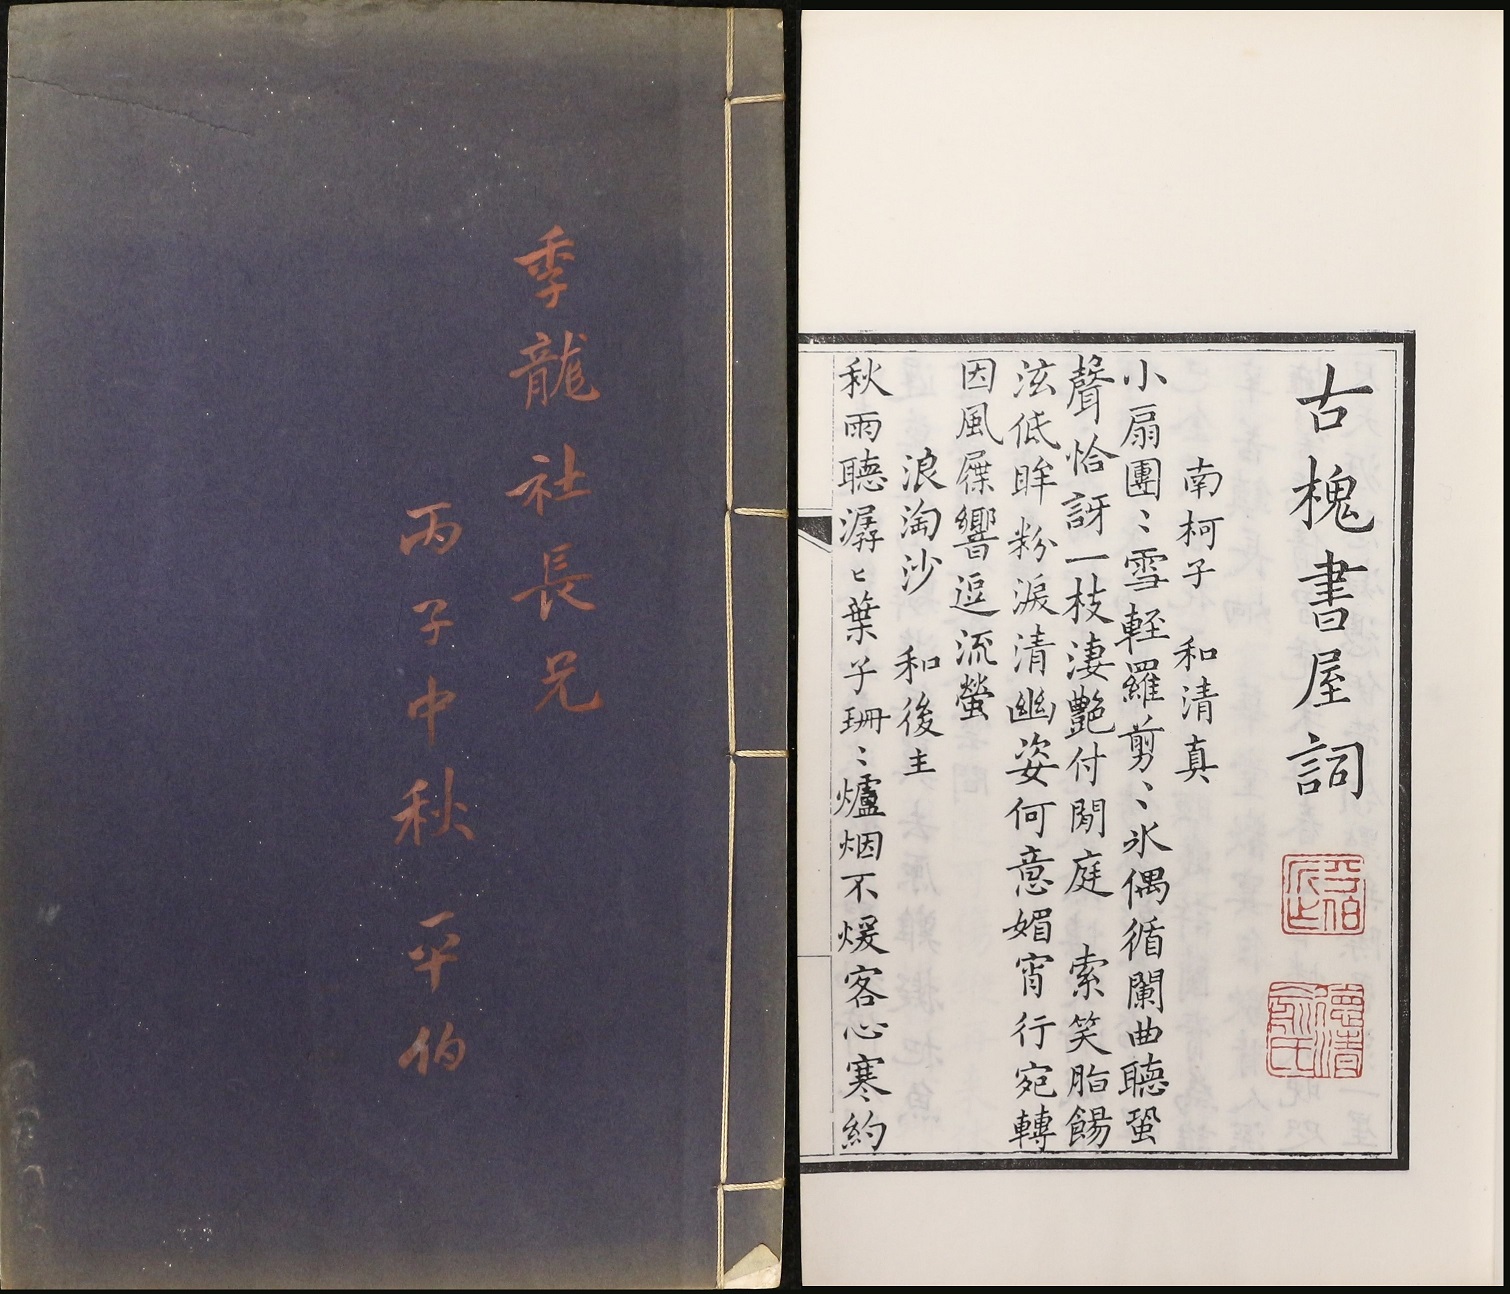 季龍社長兄
丙子中秋 平伯
古槐書屋詞
平伯
德清俞氏
南柯子 和清真
小扇團〻雪輕羅剪〻氷偶循闌曲聽蛩
聲恰訝一枝淒艷付閒庭 索笑脂餳
泫低眸粉淚清幽姿何意媚宵行宛轉
因風屧響逗流螢
浪淘沙 和後主
秋雨聽潺〻葉子珊〻爐烟不煖客心寒約